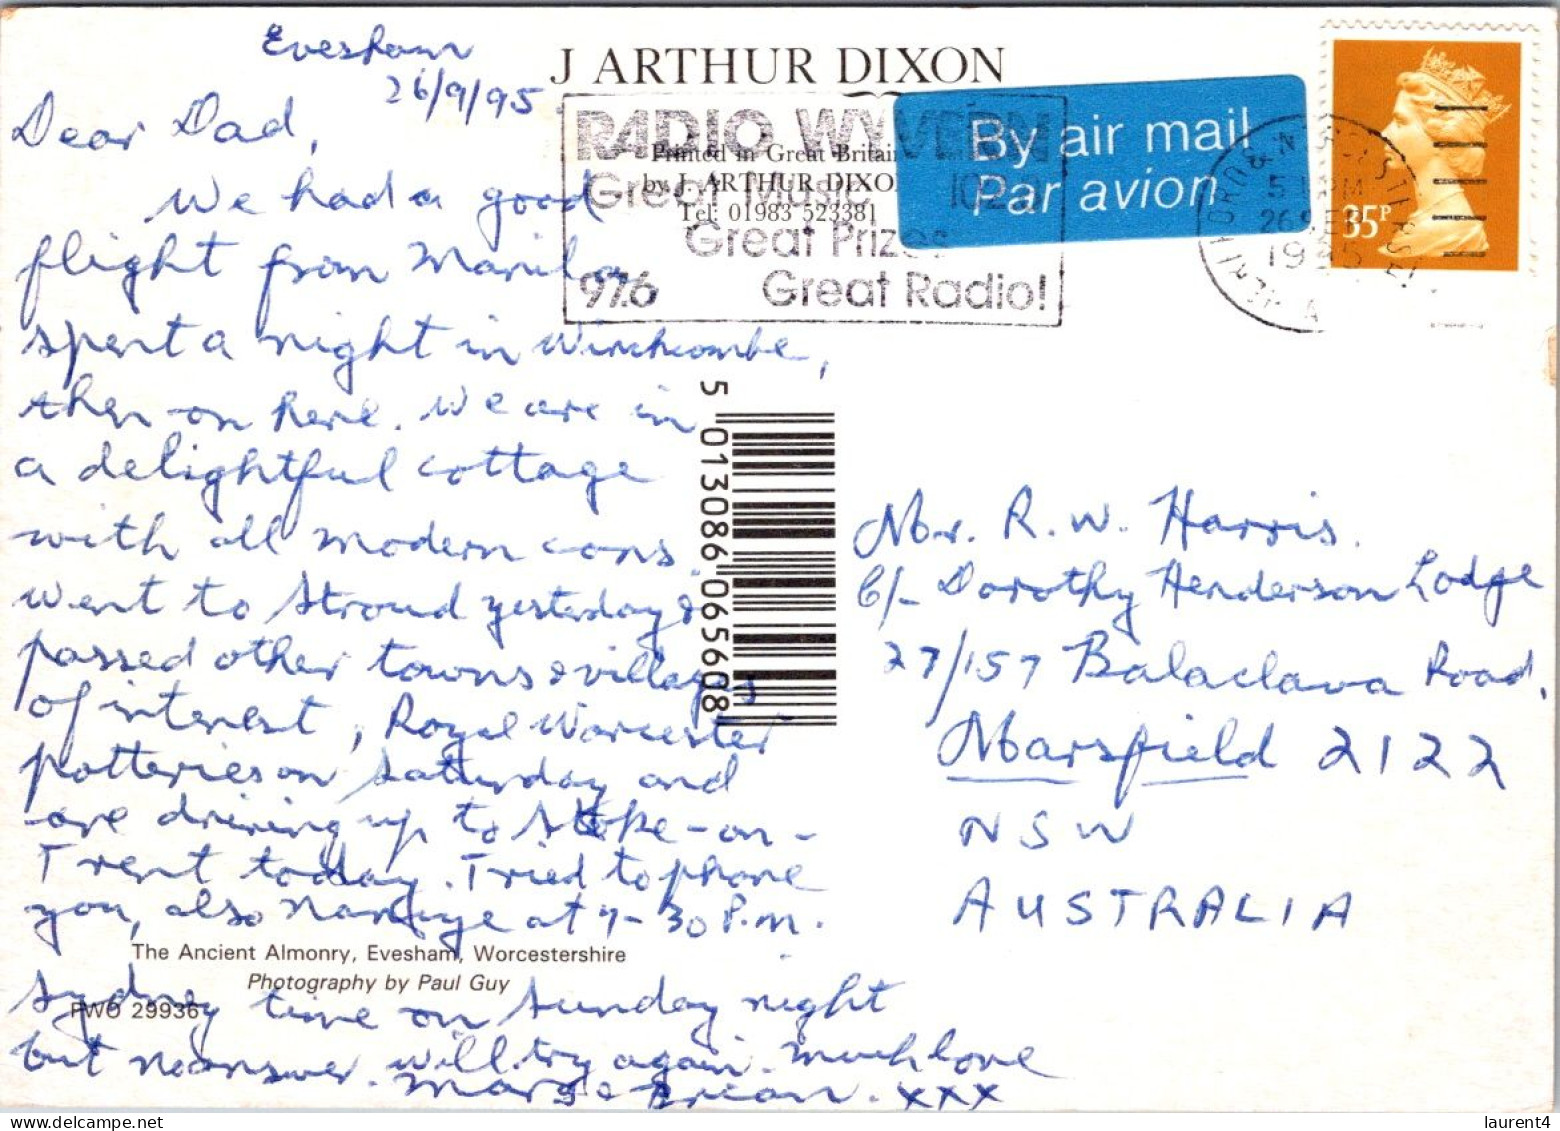 Evesham
26/9/95
J ARTHUR DIXON
Dear Dad,
We had a good
flight from Manila
spent a night in Winchcombe,
then on here. We are in
a delightful cottage
with all modern cons.
Went to Stroud yesterday &
passed other towns & villages
of interest, Royal Worcester
potteries on Saturday and
are driving up to Stoke-on-
Trent today. Tried to phone
you, also at 9-30 P.m.
Sydney time on Sunday night
but no answer. Will try again. Much love
Marg & Brian. xxx
The Ancient Almonry, Evesham, Worcestershire
Photography by Paul Guy
PWO 29936
RADIO WYVERN
Great Music 102.2
Great Prizes
97.6 Great Radio!
Printed in Great Britain
by J. ARTHUR DIXON
Tel: 01983 523381
By air mail
Par avion
5 PM
26 SEP
1995
35P
5 013086 065608
Mr. R. W. Harris.
C/- Dorothy Henderson Lodge
27/157 Balaclava Road,
Marsfield 2122
NSW
AUSTRALIA
delcampe.net
laurent4